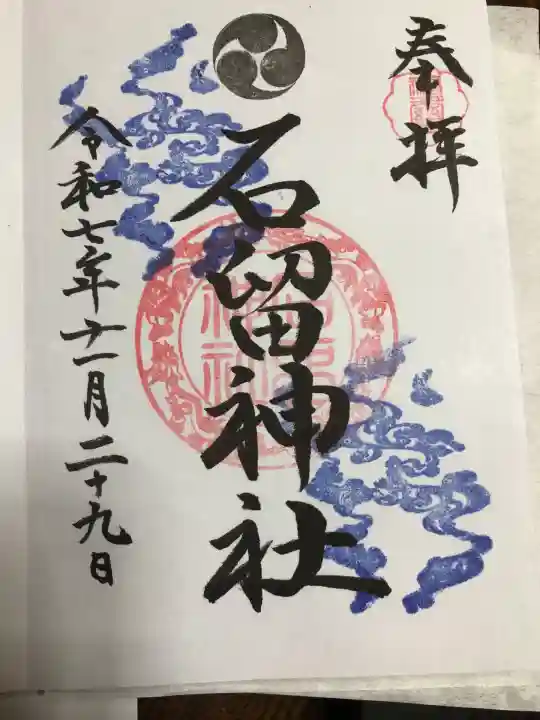 奉拝
石留神社
令和七年十一月二十九日